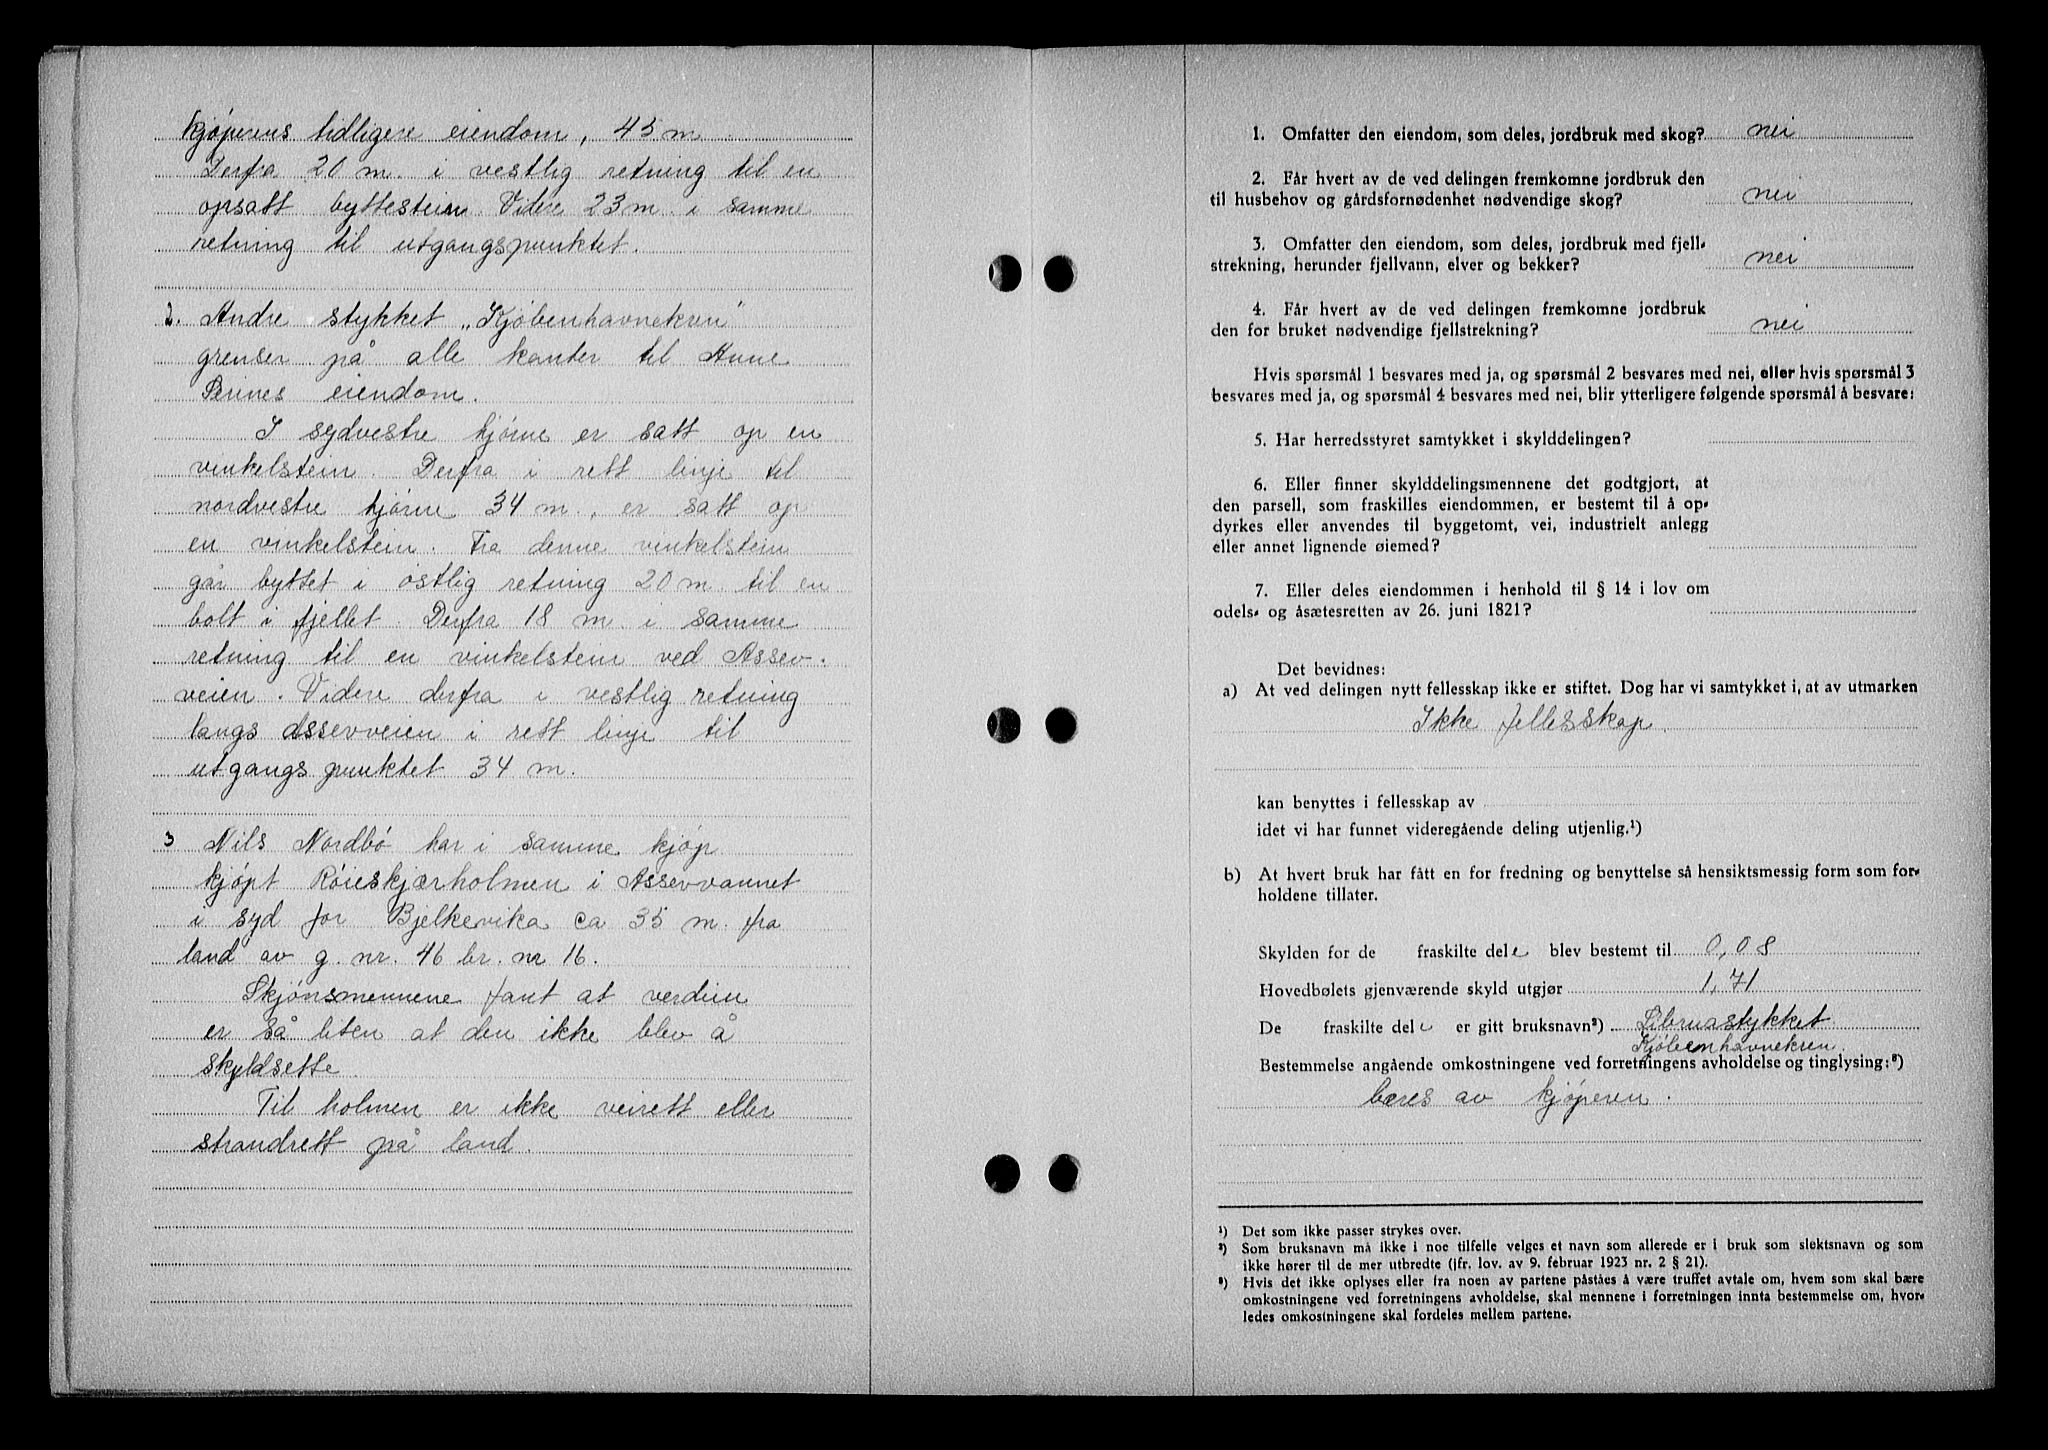 kjøperens tidligere eiendom, 45 m.
Derfra 20 m. i vestlig retning til en
opsatt byttestein. Videre 23 m. i samme
retning til utgangspunktet.
2. Andre stykket „Kjöbenhavnekren"
grenser på alle kanter til Anne
Serines eiendom.
I sydvestre hjörne er satt op en
vinkelstein. Derfra i rett linje til
nordvestre hjörne 34 m., er satt op
en vinkelstein. Fra denne vinkelstein
går byttet i östlig retning 20 m. til en
bolt i fjellet. Derfra 18 m. i samme
retning til en vinkelstein ved Assev-
veien. Videre derfra i vestlig retning
langs Assevveien i rett linje til
utgangspunktet 34 m.
3 Nils Nordbö har i samme kjøp
kjøpt Röieskjærholmen i Assevvannet
i syd for Bjelkevika ca 35 m. fra
land av g. nr. 46 br. nr 16.
Skjönsmennene fant at verdien
er så liten at den ikke blev å
skyldsette.
Til holmen er ikke veirett eller
strandrett på land.
1. Omfatter den eiendom, som deles, jordbruk med skog? nei
2. Får hvert av de ved delingen fremkomne jordbruk den
til husbehov og gårdsfornødenhet nødvendige skog? nei
3. Omfatter den eiendom, som deles, jordbruk med fjell-
strekning, herunder fjellvann, elver og bekker? nei
4. Får hvert av de ved delingen fremkomne jordbruk
den for bruket nødvendige fjellstrekning? nei
Hvis spørsmål 1 besvares med ja, og spørsmål 2 besvares med nei, eller hvis spørsmål 3
besvares med ja, og spørsmål 4 besvares med nei, blir ytterligere følgende spørsmål å besvare:
5. Har herredsstyret samtykket i skylddelingen?
6. Eller finner skylddelingsmennene det godtgjort, at
den parsell, som fraskilles eiendommen, er bestemt til å op-
dyrkes eller anvendes til byggetomt, vei, industrielt anlegg
eller annet lignende øiemed?
7. Eller deles eiendommen i henhold til § 14 i lov om
odels- og åsætesretten av 26. juni 1821?
Det bevidnes:
a) At ved delingen nytt fellesskap ikke er stiftet. Dog har vi samtykket i, at av utmarken
Ikke fellesskap.
kan benyttes i fellesskap av
idet vi har funnet videregående deling utjenlig.¹)
b) At hvert bruk har fått en for fredning og benyttelse så hensiktsmessig form som for-
holdene tillater.
Skylden for de fraskilte dele blev bestemt til 0,08
Hovedbølets gjenværende skyld utgjør 1,71
De fraskilte dele er gitt bruksnavn²) Librustykket
Kjöbenhavnekren.
Bestemmelse angående omkostningene ved forretningens avholdelse og tinglysing:³)
bæres av kjøperen.
¹) Det som ikke passer strykes over.
²) Som bruksnavn må ikke i noe tilfelle velges et navn som allerede er i bruk som slektsnavn og som
ikke hører til de mer utbredte (jfr. lov. av 9. februar 1923 nr. 2 § 21).
³) Hvis det ikke oplyses eller fra noen av partene påståes å være truffet avtale om, hvem som skal bære
omkostningene ved forretningens avholdelse, skal mennene i forretningen innta bestemmelse om, hvor-
ledes omkostningene skal fordeles mellem partene.